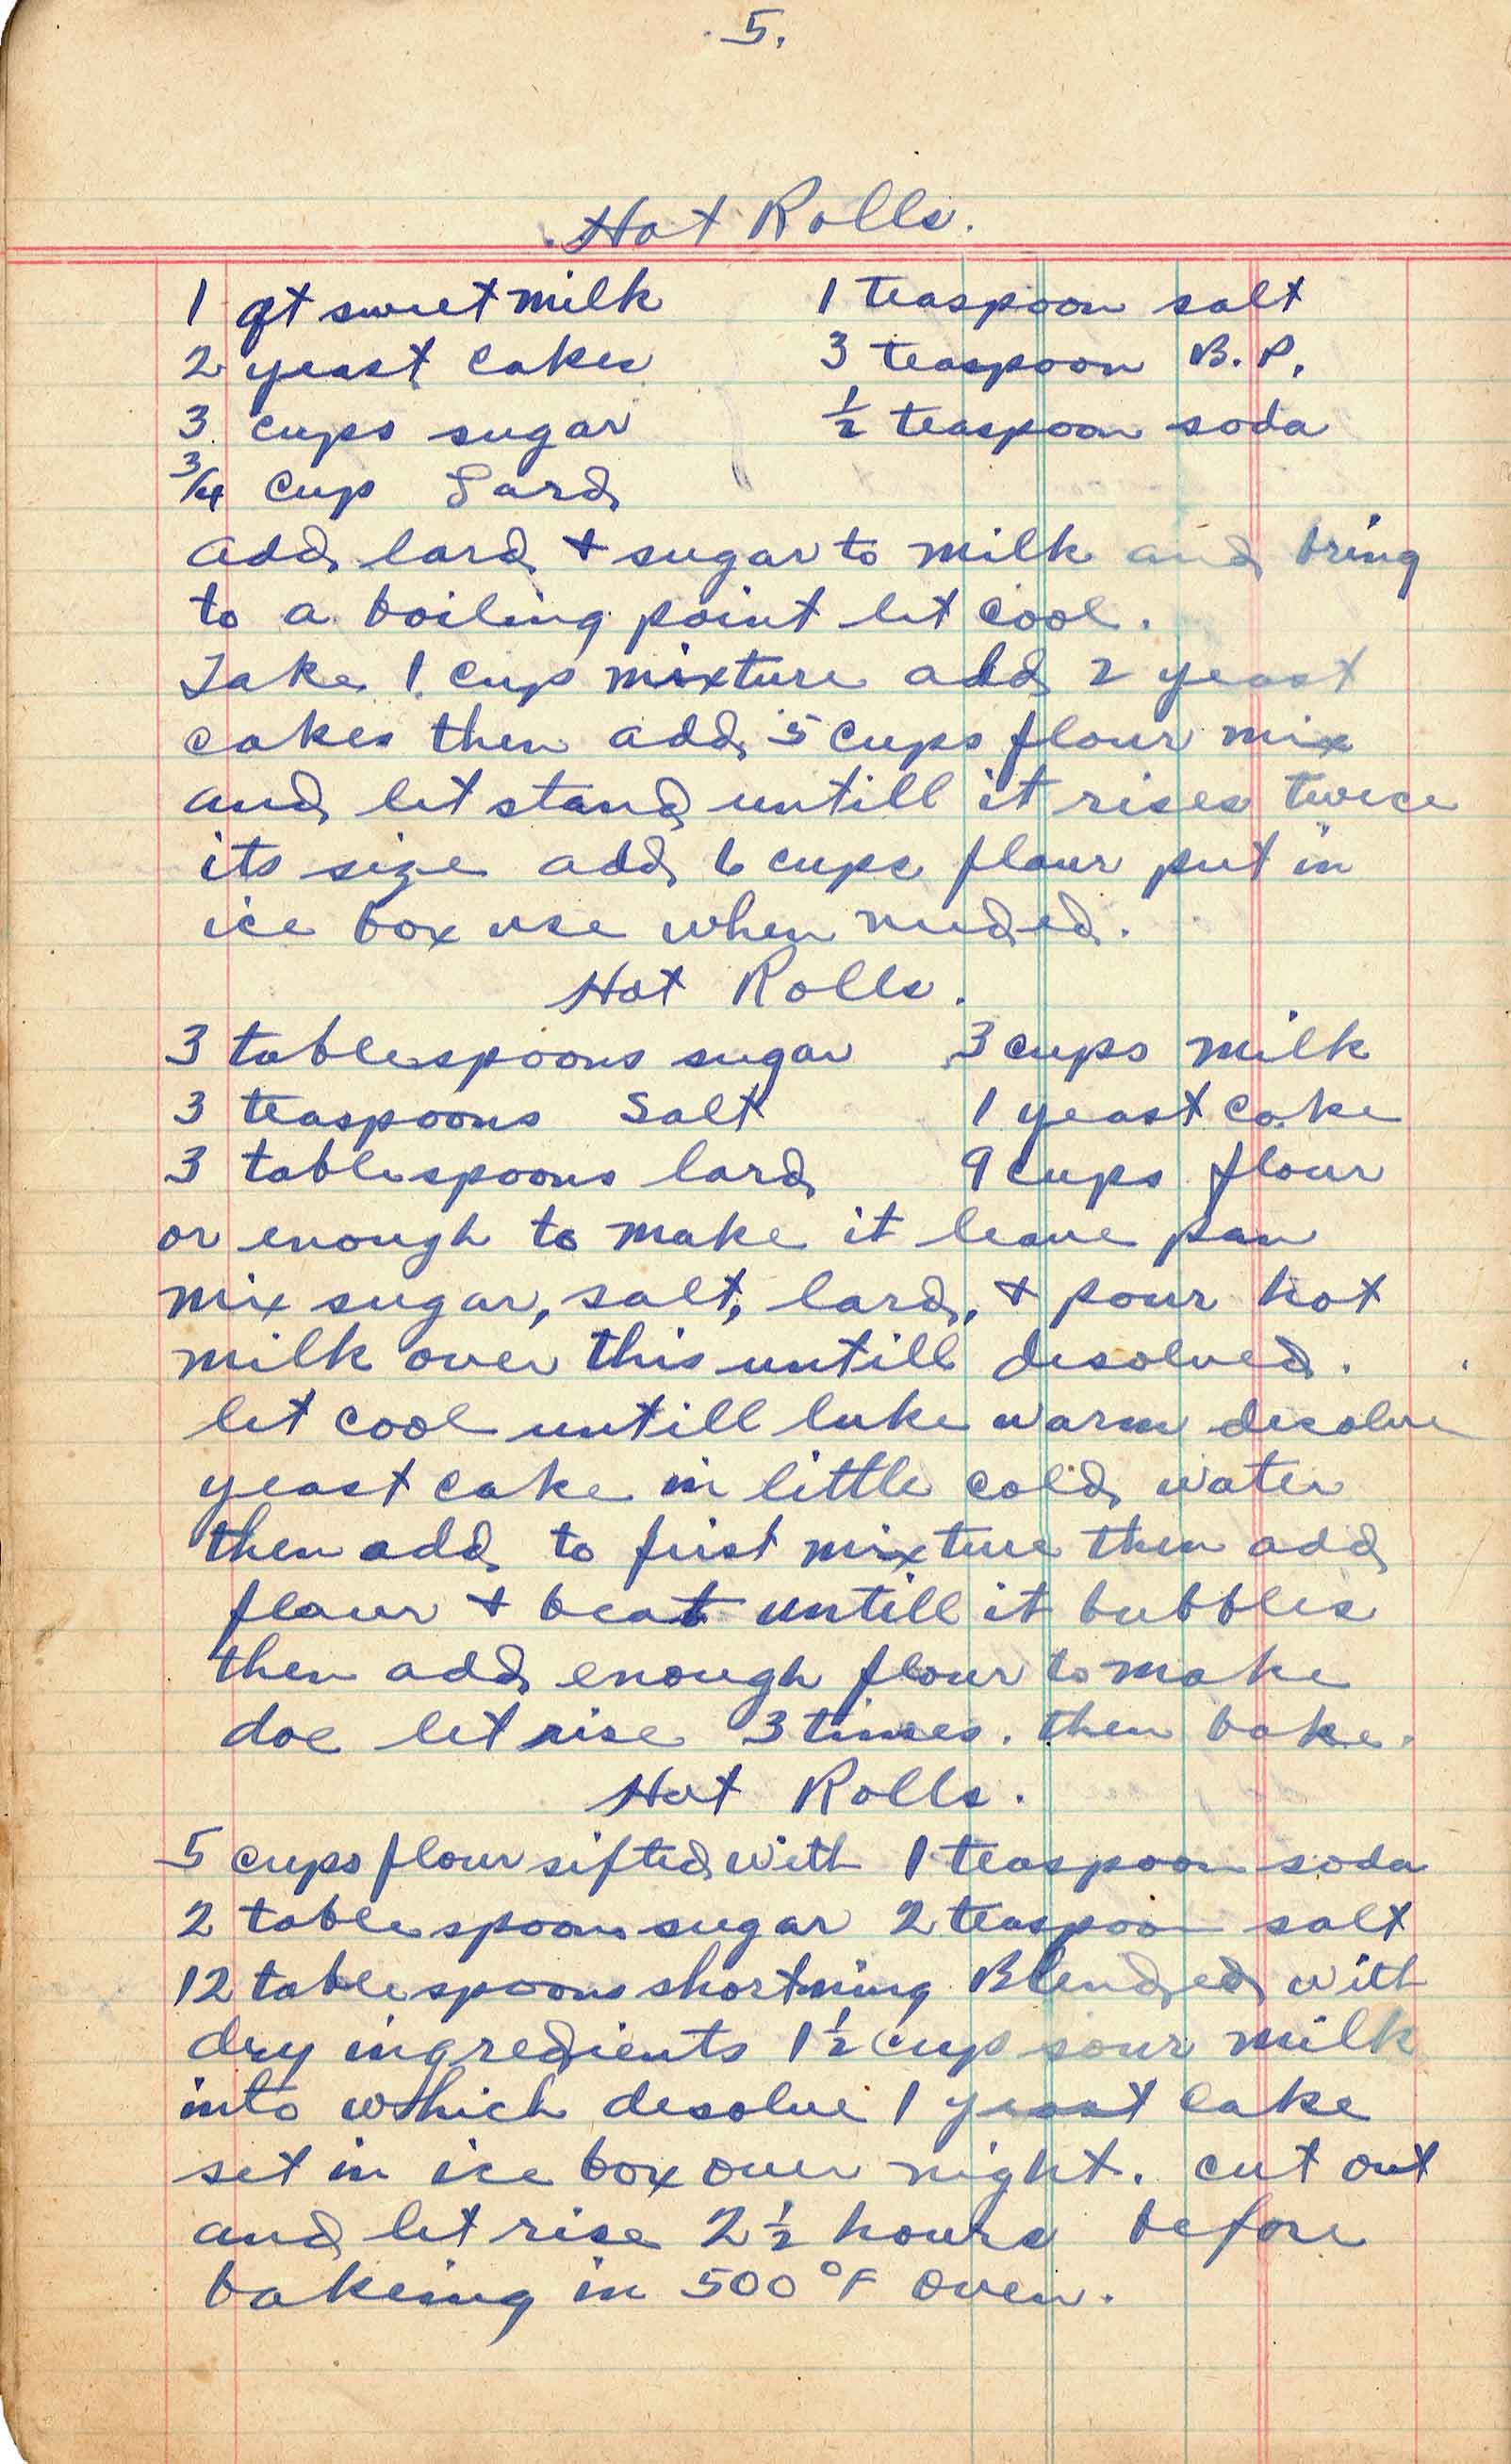 .5.
Hot Rolls.
1 qt sweet milk 1 teaspoon salt
2 yeast cakes 3 teaspoon B.P.
3 cups sugar ½ teaspoon soda
3/4 cup Lard
add lard + sugar to milk and bring
to a boiling point let cool.
Take 1 cup mixture add 2 yeast
cakes then add 5 cups flour mix
and let stand untill it rises twice
its size add 6 cups flour put in
ice box use when needed.
Hot Rolls.
3 tablespoons sugar 3 cups milk
3 teaspoons Salt 1 yeast cake
3 tablespoons lard 9 cups flour
or enough to make it leave pan
mix sugar, salt, lard, + pour hot
milk over this untill desolved.
let cool untill luke warm desolve
yeast cake in little cold water
then add to first mixture then add
flour + beat untill it bubbles
then add enough flour to make
doe let rise 3 times. then bake.
Hot Rolls.
5 cups flour sifted with 1 teaspoon soda
2 tablespoons sugar 2 teaspoon salt
12 tablespoons shortning Blended with
dry ingredients 1½ cup sour milk
into which desolve 1 yeast cake
set in ice box over night. cut out
and let rise 2½ hours before
bakeing in 500°F oven.